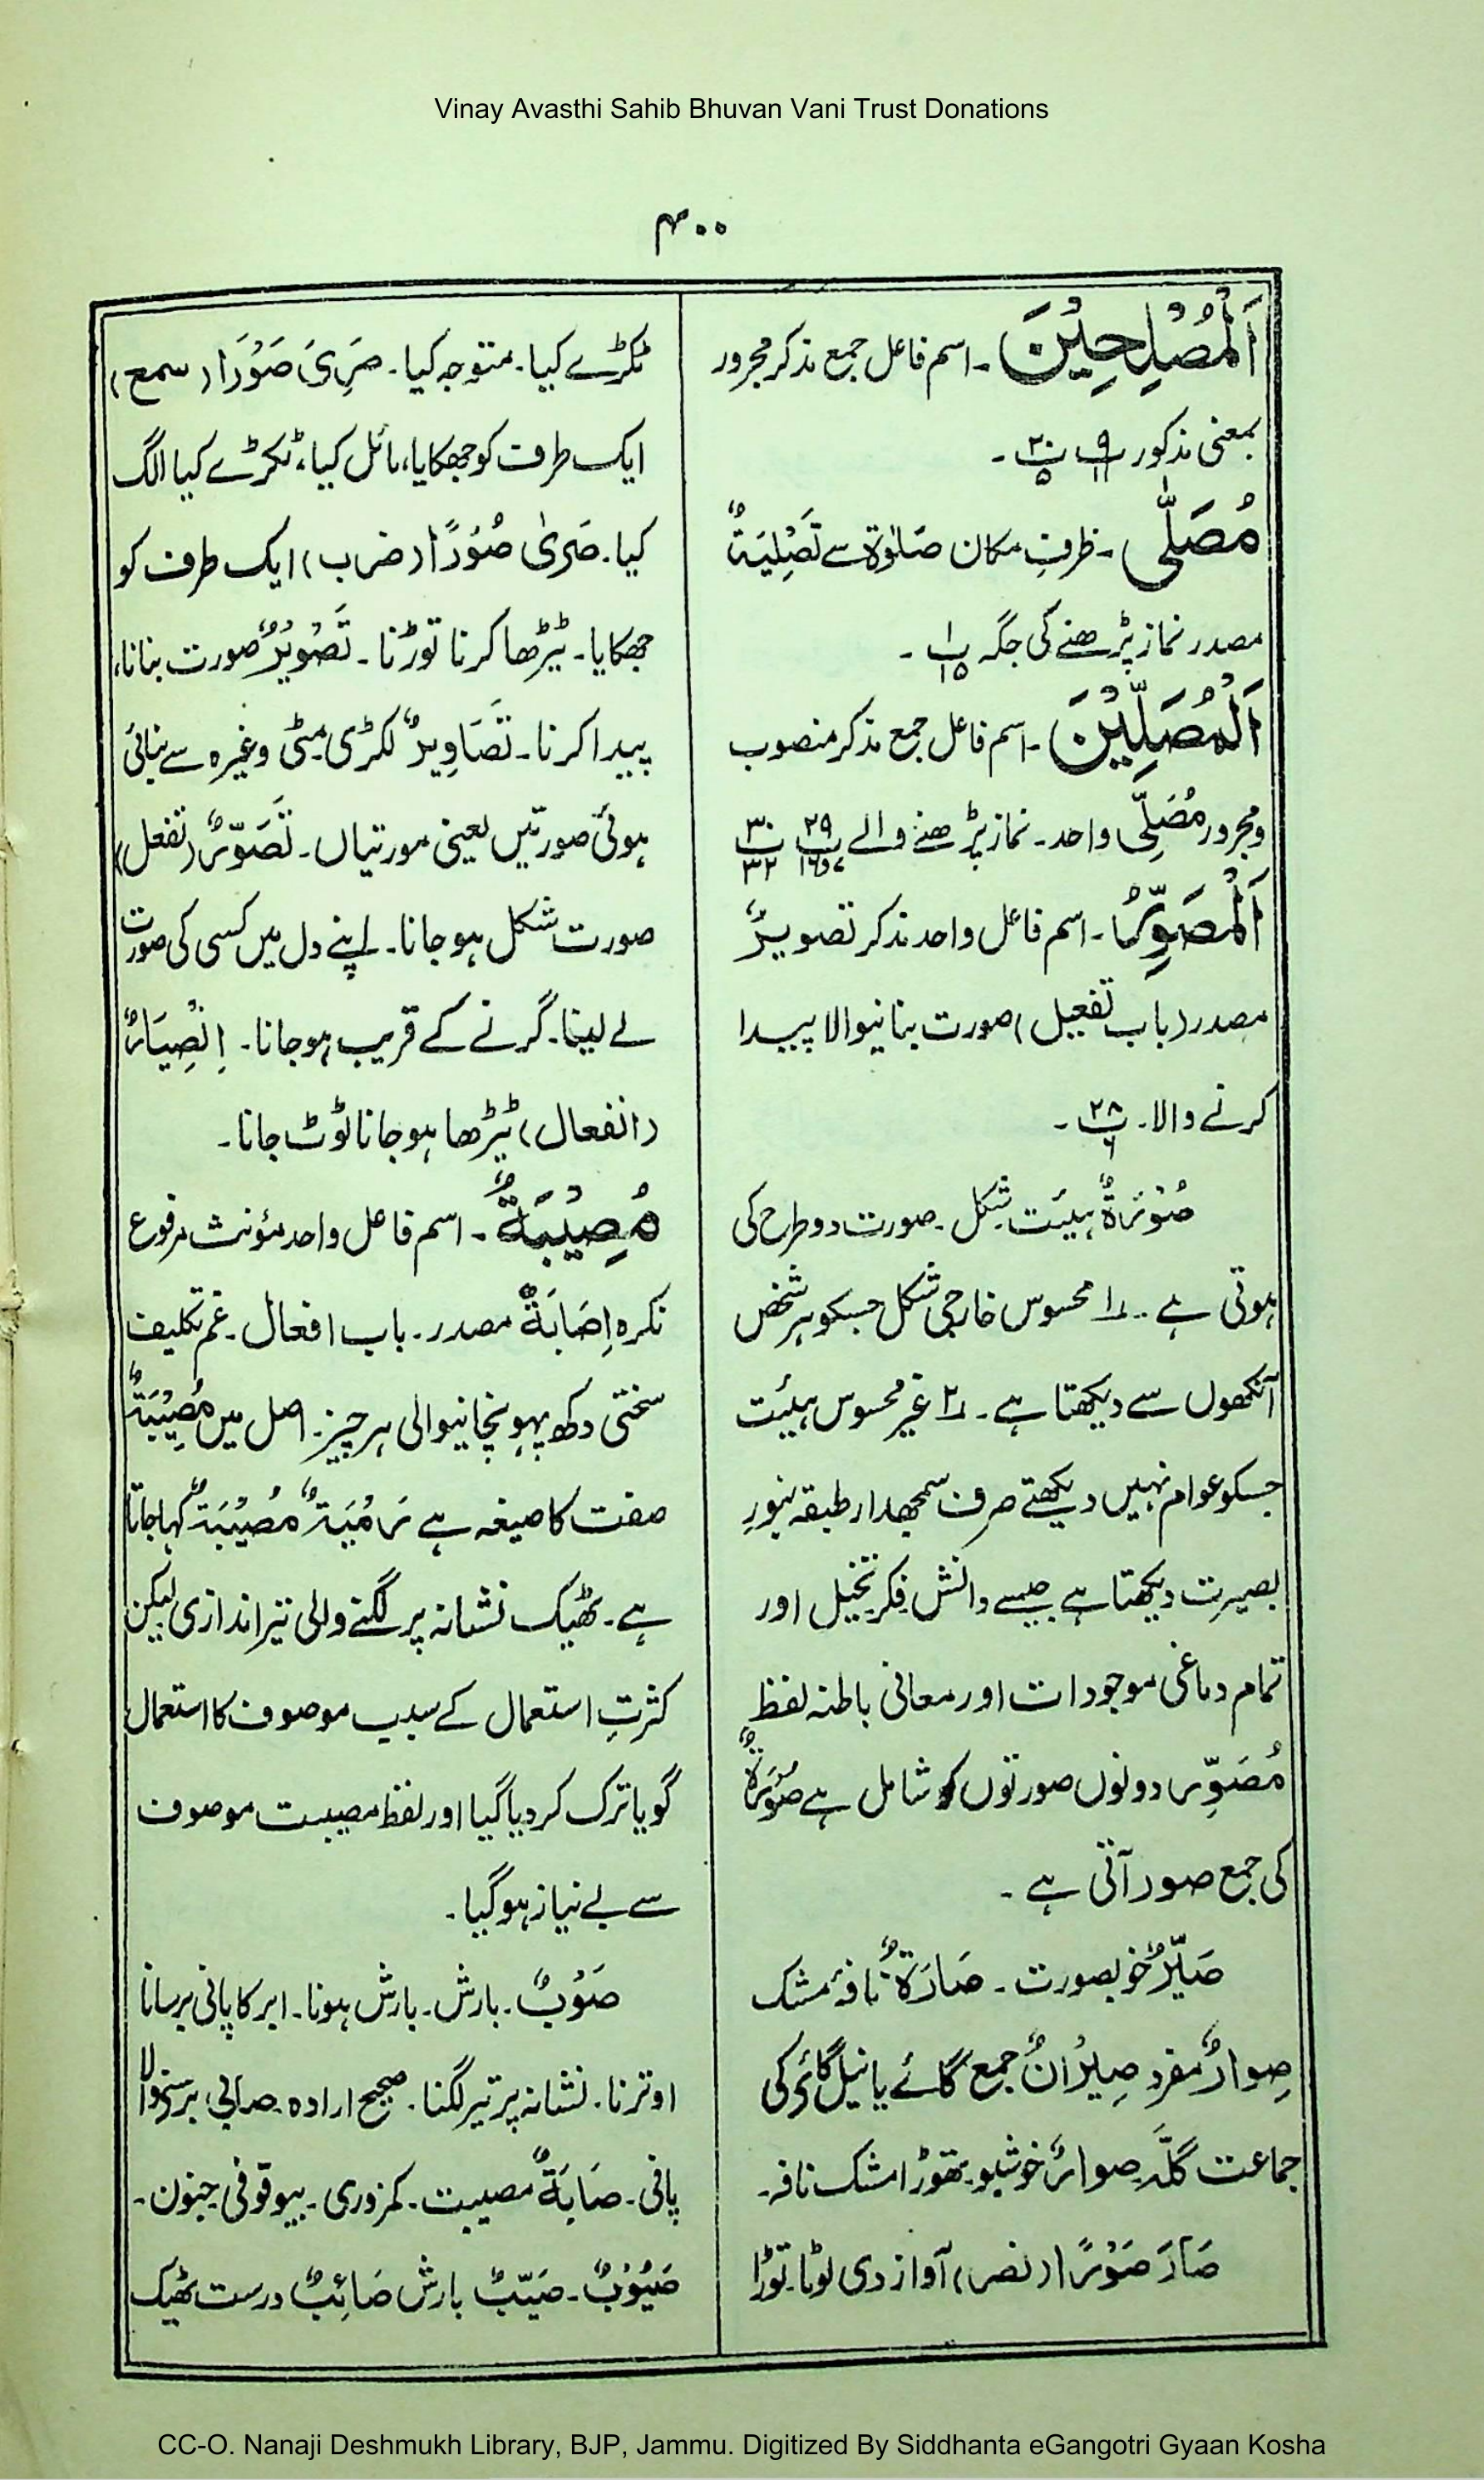 Vinay Avasthi Sahib Bhuvan Vani Trust Donations
۴۰۰
اَلْمُصْلِحِیْنَ۔ اسم فاعل جمع مذکر مجرور
بمعنی مذکور پ۹/۱۱ پ۲۰/۵۔
مُصَلّٰی۔ ظرفِ مکان صَلٰوۃ سے تَصْلِیَۃٌ
مصدر نماز پڑھنے کی جگہ پ۱/۱۵۔
اَلْمُصَلِّیْنَ۔ اسم فاعل جمع مذکر منصوب
و مجرور مُصَلِّی واحد۔ نماز پڑھنے والے پ۲۹/۱۶و۷ پ۳۰/۳۲
اَلْمُصَوِّرُ۔ اسم فاعل واحد مذکر تصویرٌ
مصدر (باب تفعیل) صورت بنانیوالا پیدا
کرنے والا۔ پ۲۸/۶۔
صُوْرَۃٌ ہیئت۔ شکل۔ صورت دو طرح کی
ہوتی ہے۔ ۱؎ محسوس خارجی شکل جسکو ہر شخص
آنکھوں سے دیکھتا ہے۔ ۲؎ غیر محسوس ہیئت
جسکو عوام نہیں دیکھتے صرف سمجھدار طبقہ بنورِ
بصیرت دیکھتا ہے جیسے دانش۔ فکر تخیل اور
تمام دماغی موجودات اور معانی باطنہ لفظ
مُصَوِّر دونوں صورتوں کو شامل ہے صُوْرَۃٌ
کی جمع صور آتی ہے۔
صَیِّرٌ خوبصورت۔ صَارَۃٌ نافۂ مشک
صِوارٌ مفرد صِیْرَانٌ جمع گائے یا نیل گائے کی
جماعت گلّہ۔ صوارٌ خوشبو۔ تھوڑا مشک نافہ۔
صَارَ صَوْرًا (نصر) آواز دی لوٹا۔ توڑا
ٹکڑے کیا۔ متوجہ کیا۔ صَرِیَ صَوْرًا (سمع)
ایک طرف کو جھکایا، مائل کیا، ٹکڑے کیا الگ
کیا۔ صَریٰ صُوْرًا (ضرب) ایک طرف کو
جھکایا۔ ٹیڑھا کرنا توڑنا۔ تَصْوِیْرٌ صورت بنانا،
پیدا کرنا۔ تَصَاوِیرٌ لکڑی مٹی وغیرہ سے بنائی
ہوئی صورتیں یعنی مورتیاں۔ تَصَوُّرٌ (تفعل)
صورت شکل ہو جانا۔ اپنے دل میں کسی کی صورت
لے لینا۔ گرنے کے قریب ہو جانا۔ اِنْصِیَارٌ
(انفعال) ٹیڑھا ہو جانا ٹوٹ جانا۔
مُصِیْبَۃٌ۔ اسم فاعل واحد مؤنث مرفوع
نکرہ اِصَابَۃٌ مصدر۔ باب افعال۔ غم تکلیف
سختی دکھ پہونچانیوالی ہر چیز۔ اصل میں مُصِیْبَۃٌ
صفت کا صیغہ ہے رَمْیَۃٌ مُصِیْبَۃٌ کہا جاتا
ہے۔ ٹھیک نشانہ پر لگنے والی تیراندازی لیکن
کثرتِ استعمال کے سبب موصوف کا استعمال
گویا ترک کر دیا گیا اور لفظ مصیبت موصوف
سے بے نیاز ہو گیا۔
صَوْبٌ۔ بارش۔ بارش ہونا۔ ابر کا پانی برسانا
اوترنا۔ نشانہ پر تیر لگنا۔ صحیح ارادہ۔ صرابی برسنے والا
پانی۔ صَابَۃٌ مصیبت۔ کمزوری۔ بیوقوفی جنون۔
صَیُوْبٌ۔ صَیِّبٌ بارش صَائِبٌ درست ٹھیک
CC-O. Nanaji Deshmukh Library, BJP, Jammu. Digitized By Siddhanta eGangotri Gyaan Kosha